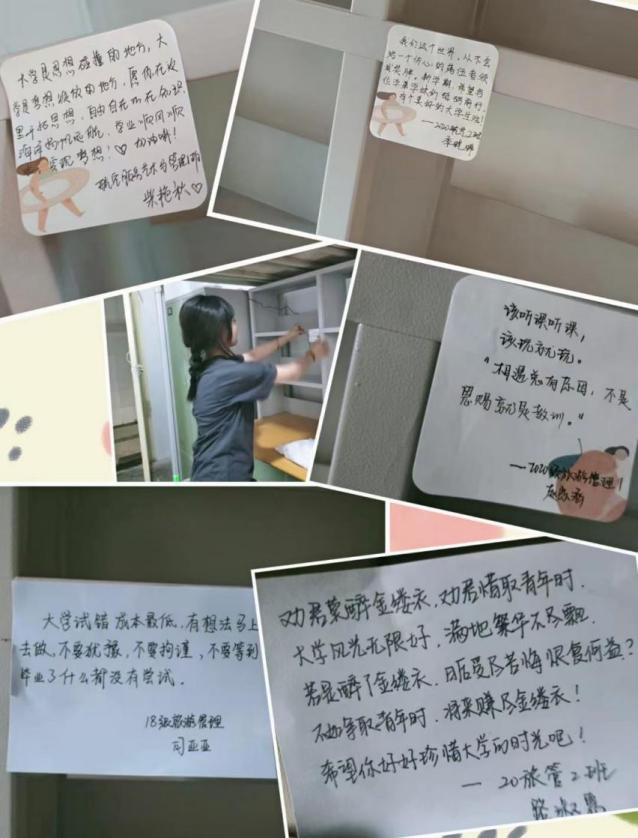 大学是思想碰撞的地方，大
学是梦想绽放的地方，愿你在这
里开拓思想，自由自在地在知识
海洋扬帆远航，学业顺风顺
实现梦想！♡ 加油哦！
柴艳秋♡
我们这个世界，从不会
给一个伤心的落伍者颁
发奖牌。新学期，希望
有个美好的大学生活！
——2020旅管2班
该听课听课，
该玩就玩。
“相遇总有原因，不是
恩赐就是教训。”
——2020级旅游管理1
大学试错成本最低，有想法马上
去做，不要犹豫，不要拘谨，不要等到
毕业了什么都没有尝试。
18级旅游管理
司亚亚
劝君莫醉金缕衣，劝君惜取青年时。
大学风光无限好，满地繁华不尽飘。
若是醉了金缕衣，日后受尽苦悔恨复何益？
不如争取青年时，将来赚尽金缕衣！
希望你好好珍惜大学的时光吧！
— 20旅管2班